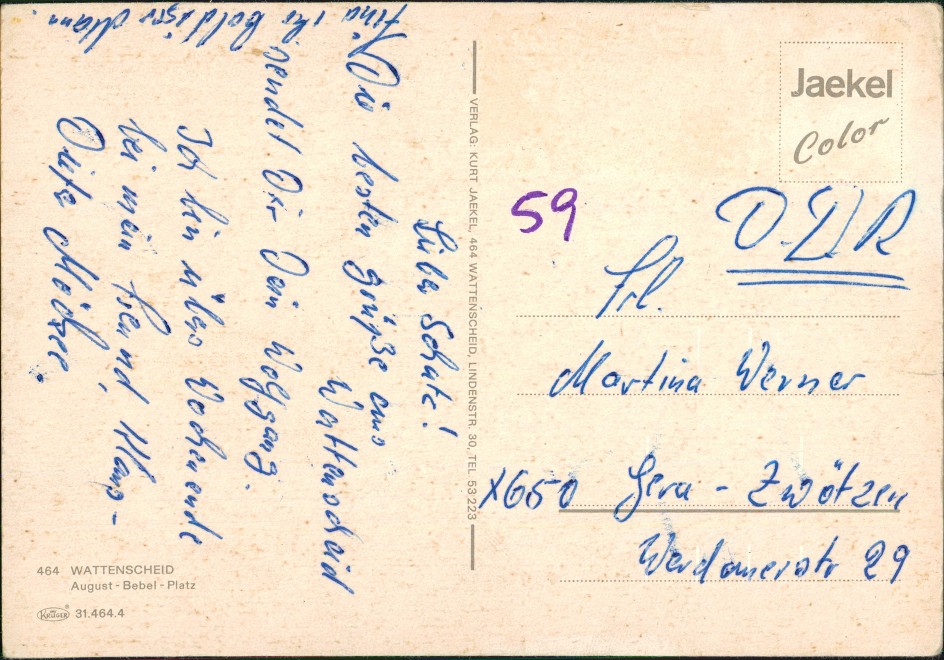 Liebe Schatz!
Die besten Grüße aus
Wattenscheid
sendet Dir Dein Wolfgang.
Ich bin übers Wochenende
bei mein freund, Klaus-
ihr baldiger Mann.
464 WATTENSCHEID
August-Bebel-Platz
KRÜGER 31.464.4
VERLAG: KURT JAEKEL, 464 WATTENSCHEID, LINDENSTR. 30, TEL. 53 223
Jaekel
Color
59
DDR
Frl.
Martina Werner
X650 Gera - Zwötzen
Werdauerstr 29